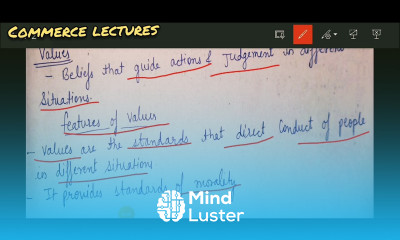 COMMERCE LECTURES
Values
- Beliefs that guide actions & Judgement in different
Situations.
features of values
- Values are the standards that direct Conduct of people
in different situations
- It provides standards of morality
Mind
Luster